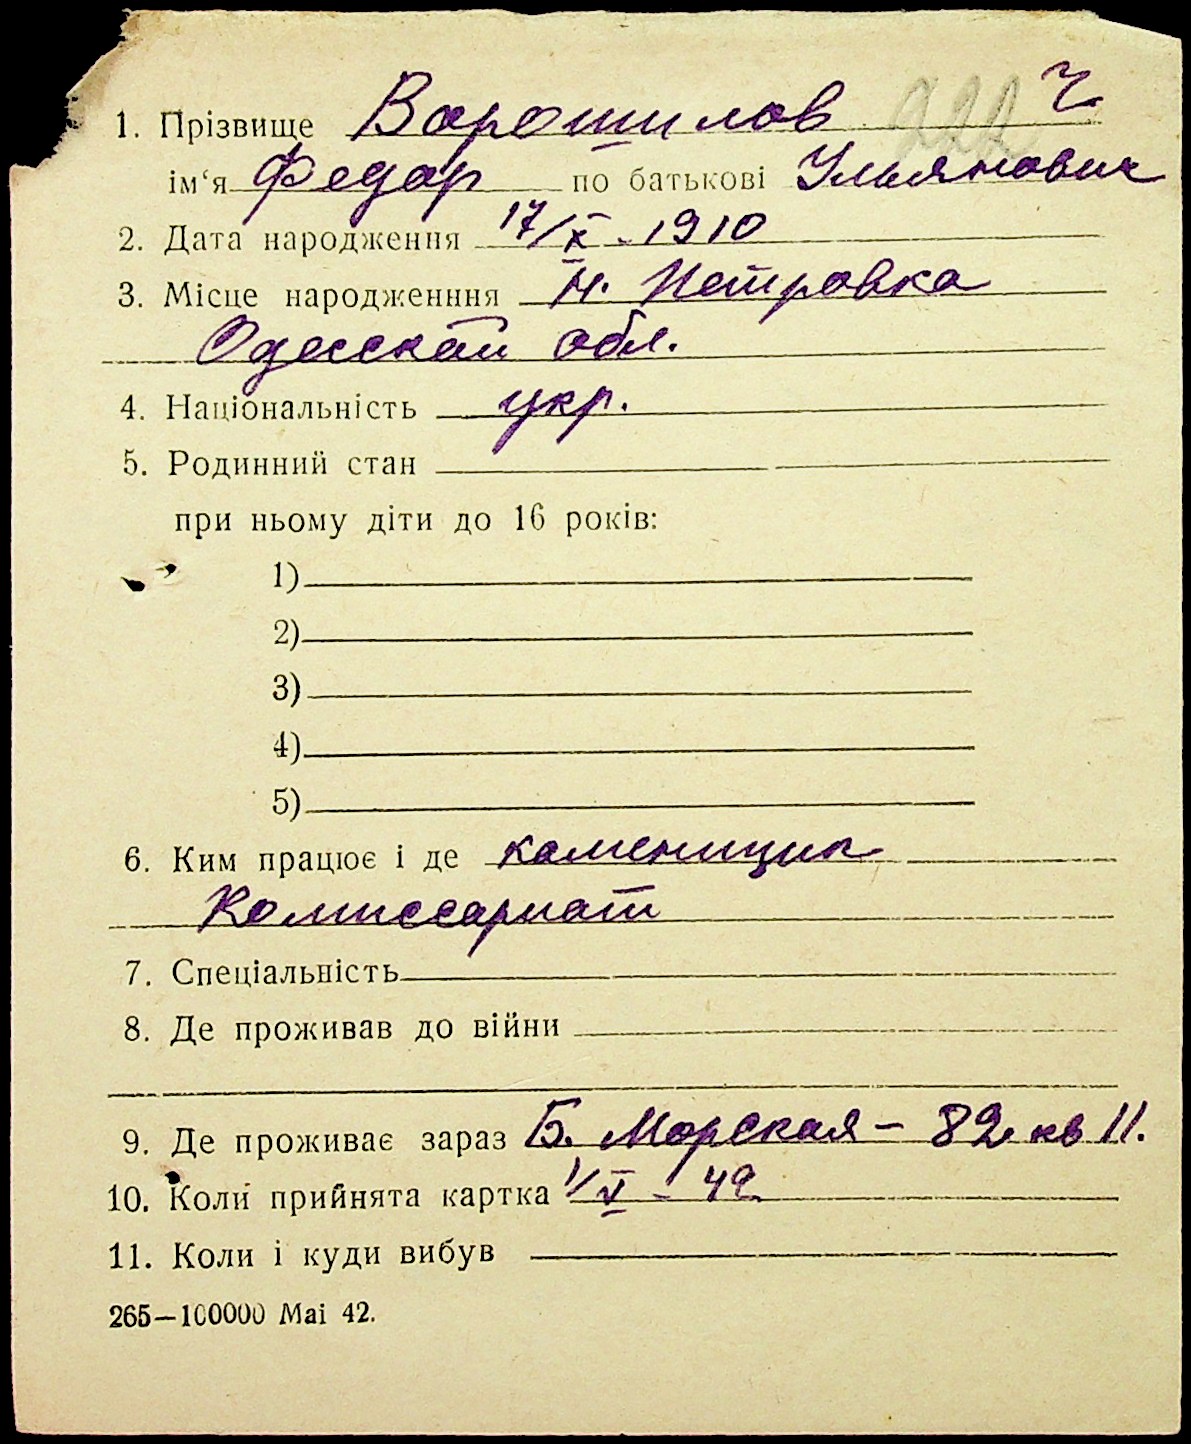 ч
1. Прізвище Ворошилов 222
ім‘я Федор по батькові Ульянович
2. Дата народження 17/X - 1910
3. Місце народженння Н. Петровка
Одесской обл.
4. Національність укр.
5. Родинний стан
при ньому діти до 16 років:
1)
2)
3)
4)
5)
6. Ким працює і де каменщик
Комиссариат
7. Спеціальність
8. Де проживав до війни
9. Де проживає зараз Б. Морская - 82 кв 11.
10. Коли прийнята картка 1/V - 42
11. Коли і куди вибув
265—100000 Маі 42.